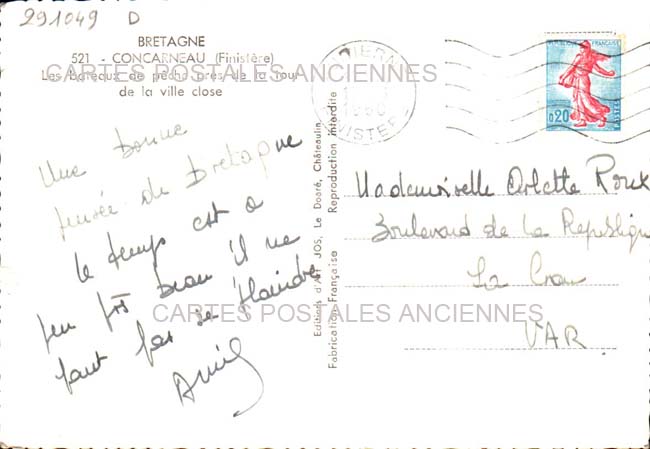 291049 D
BRETAGNE
521 - CONCARNEAU (Finistère)
Les bateaux de pêche près de la Tour
de la ville close
CARTES POSTALES ANCIENNES
Une bonne
pensée de Bretagne
le temps est a
peu près beau il ne
faut pas se plaindre
Editions d'Art JOS, Le Doaré, Châteaulin
Fabrication Française Reproduction interdite
1960
FINISTERE
REPUBLIQUE FRANÇAISE
0,20
POSTES
Mademoiselle Arlette Roux
Boulevard de la République
La Crau
VAR
CARTES POSTALES ANCIENNES